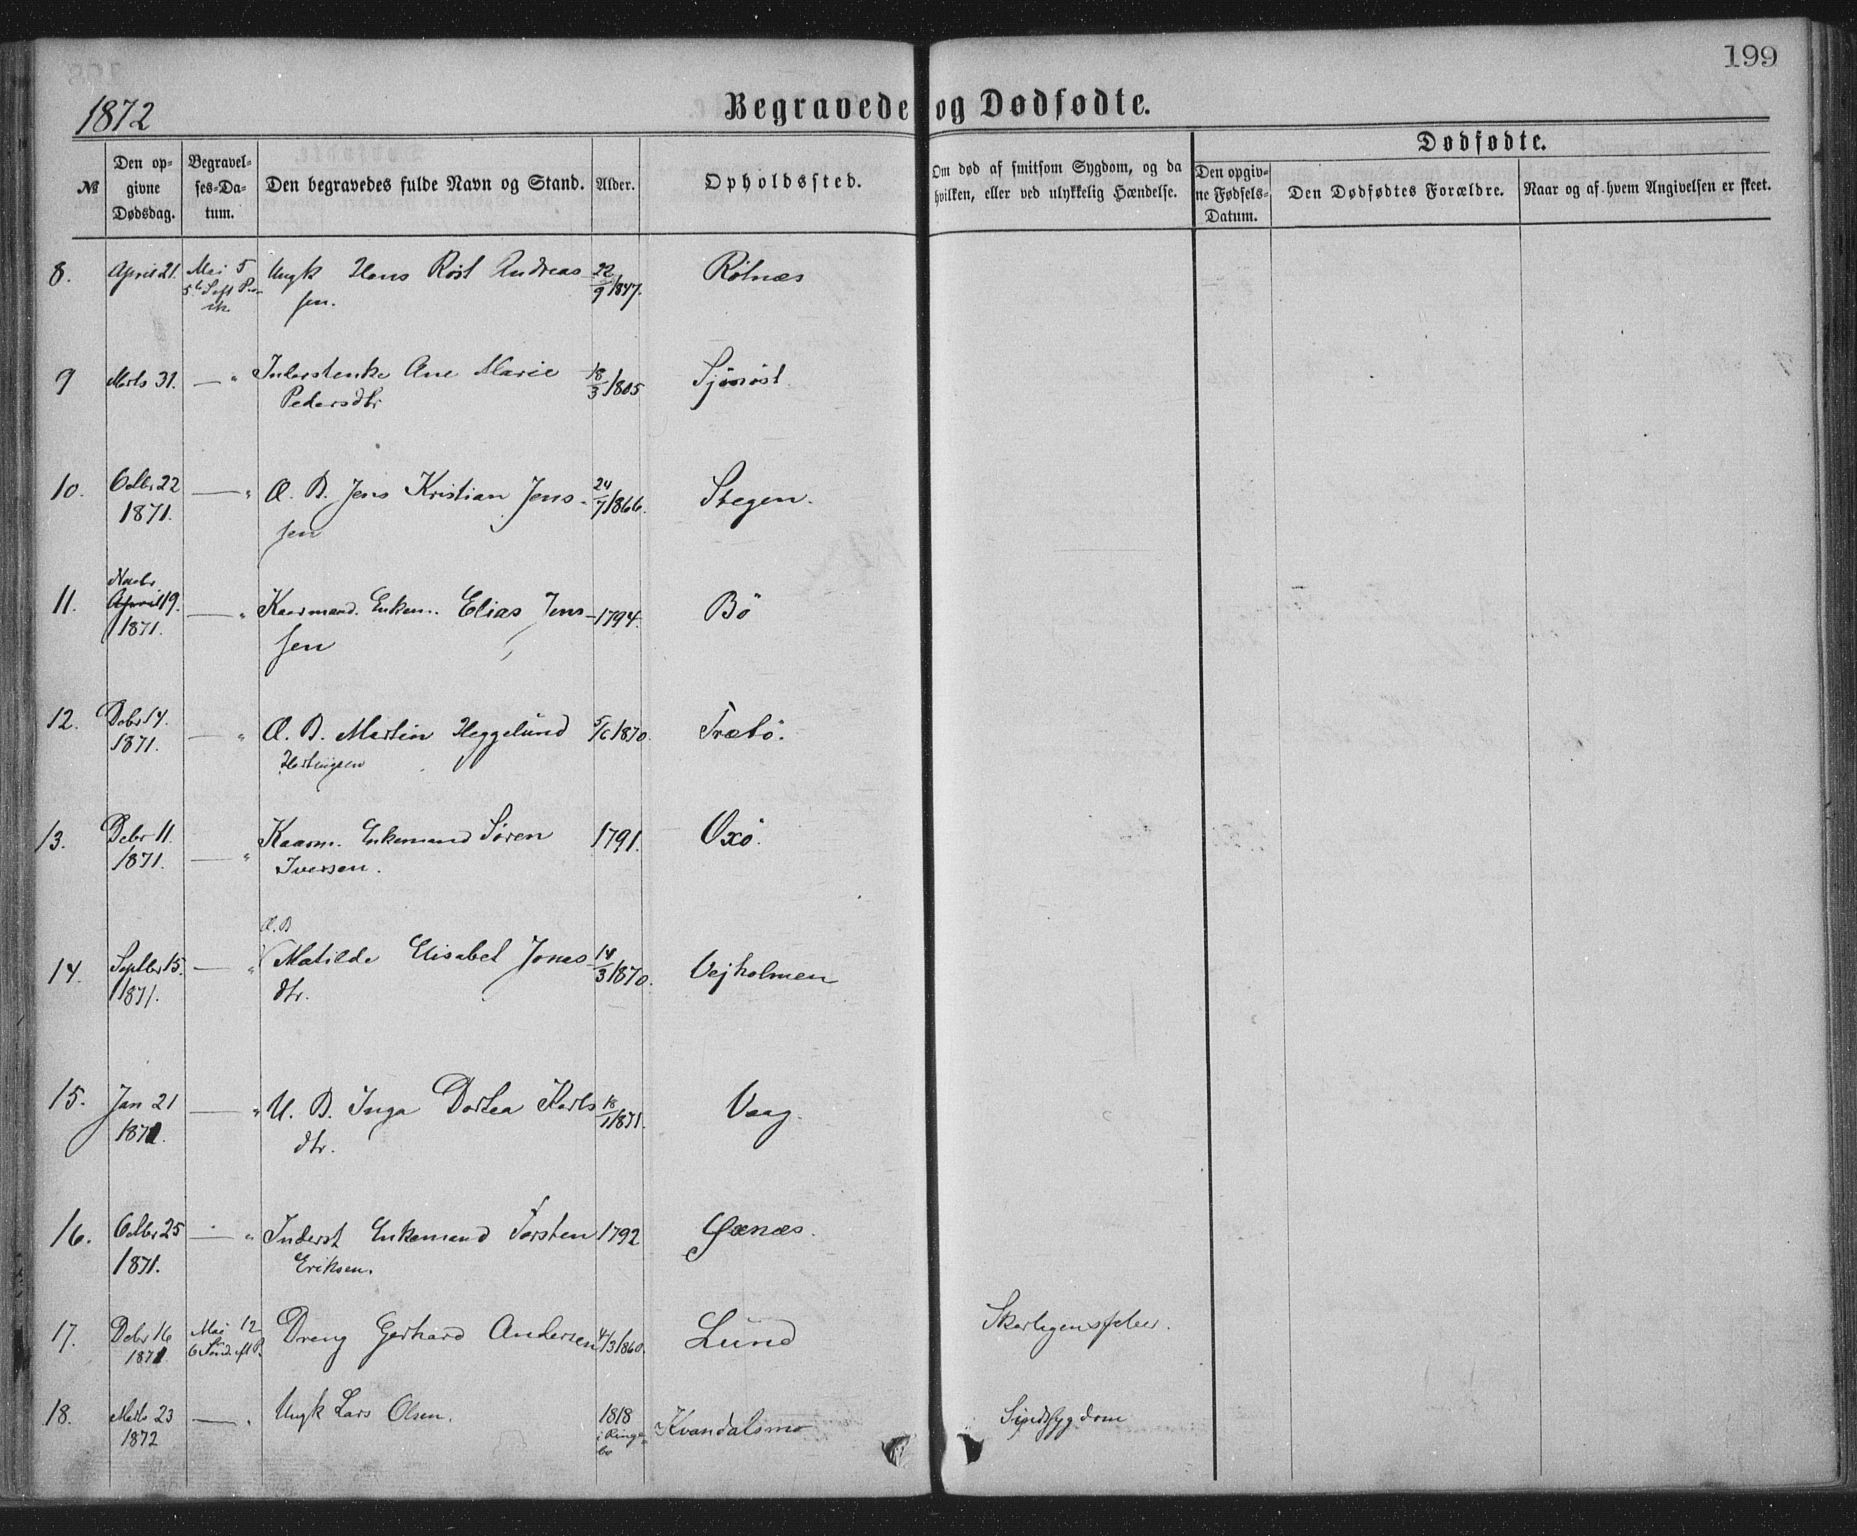 199
1872
Begravede og Dødfødte.
№
Den op-
givne
Dødsdag.
Begravel-
ses-Da-
tum.
Den begravedes fulde Navn og Stand.
Alder.
Opholdssted.
Om død af smitsom Sygdom, og da
hvilken, eller ved ulykkelig Hændelse.
Dødfødte.
Den opgiv-
ne Fødsels-
Datum.
Den Dødfødtes Forældre.
Naar og af hvem Angivelsen er skeet.
8. April 21. Mai 5 Ungk Hans Röst Andreas 22/9 1847. Rötnæs
sen.
9 Marts 31. — " Ane Marie 18/3 1805 Sjönöst.
Pedersdtr
10. Octbr 22 — " Æ. B. Jens Kristian Jens- 24/7 1866. Stegen.
1871. sen
11. Novbr
April 19. — " Kaarmand. Enkem. Elias Jens- 1794. Bö
1871. sen
12. Debr 14. — " Æ. B. Martin Heggelund 5/6 1870. Træbö.
1871. Hartvigsen
13. Debr 11. — " Kaarm. Enkemand Sören 1791. Oxö.
1871. Iversen.
Æ. B
14. Septbr 15. — " Matilde Elisabet Jonas- 14/3 1870. Vejholmen
1871. dtr.
15. Jan 21 — " U. B. Inga Dortea Karls 18/1 1871. Vaag.
1872. dtr.
16. Octbr 25 — " Inderst Enkemand Torsten 1792
1871. Eriksen.
17. Debr 16 Mai 12 Dreng Gerhard Andersen 4/3 1860. Lund Skarlagensfeber.
1871 6 Sønd. eft P.
18. Marts 23 — " Ungk Lars Olsen. 1818 Kvandalsmo Sindssygdom
1872 i Ringe-
bo